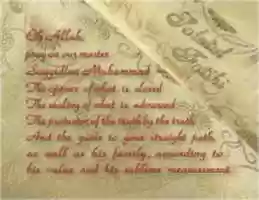 Oh Allah,
pray on our master
Sayyidina Muhammad
The opener of what is closed
The sealing of what is advanced
The protector of the truth by the truth
And the guide to your straight path
as well as his family, according to
his value and his sublime measurement
Salaat
Fatihi